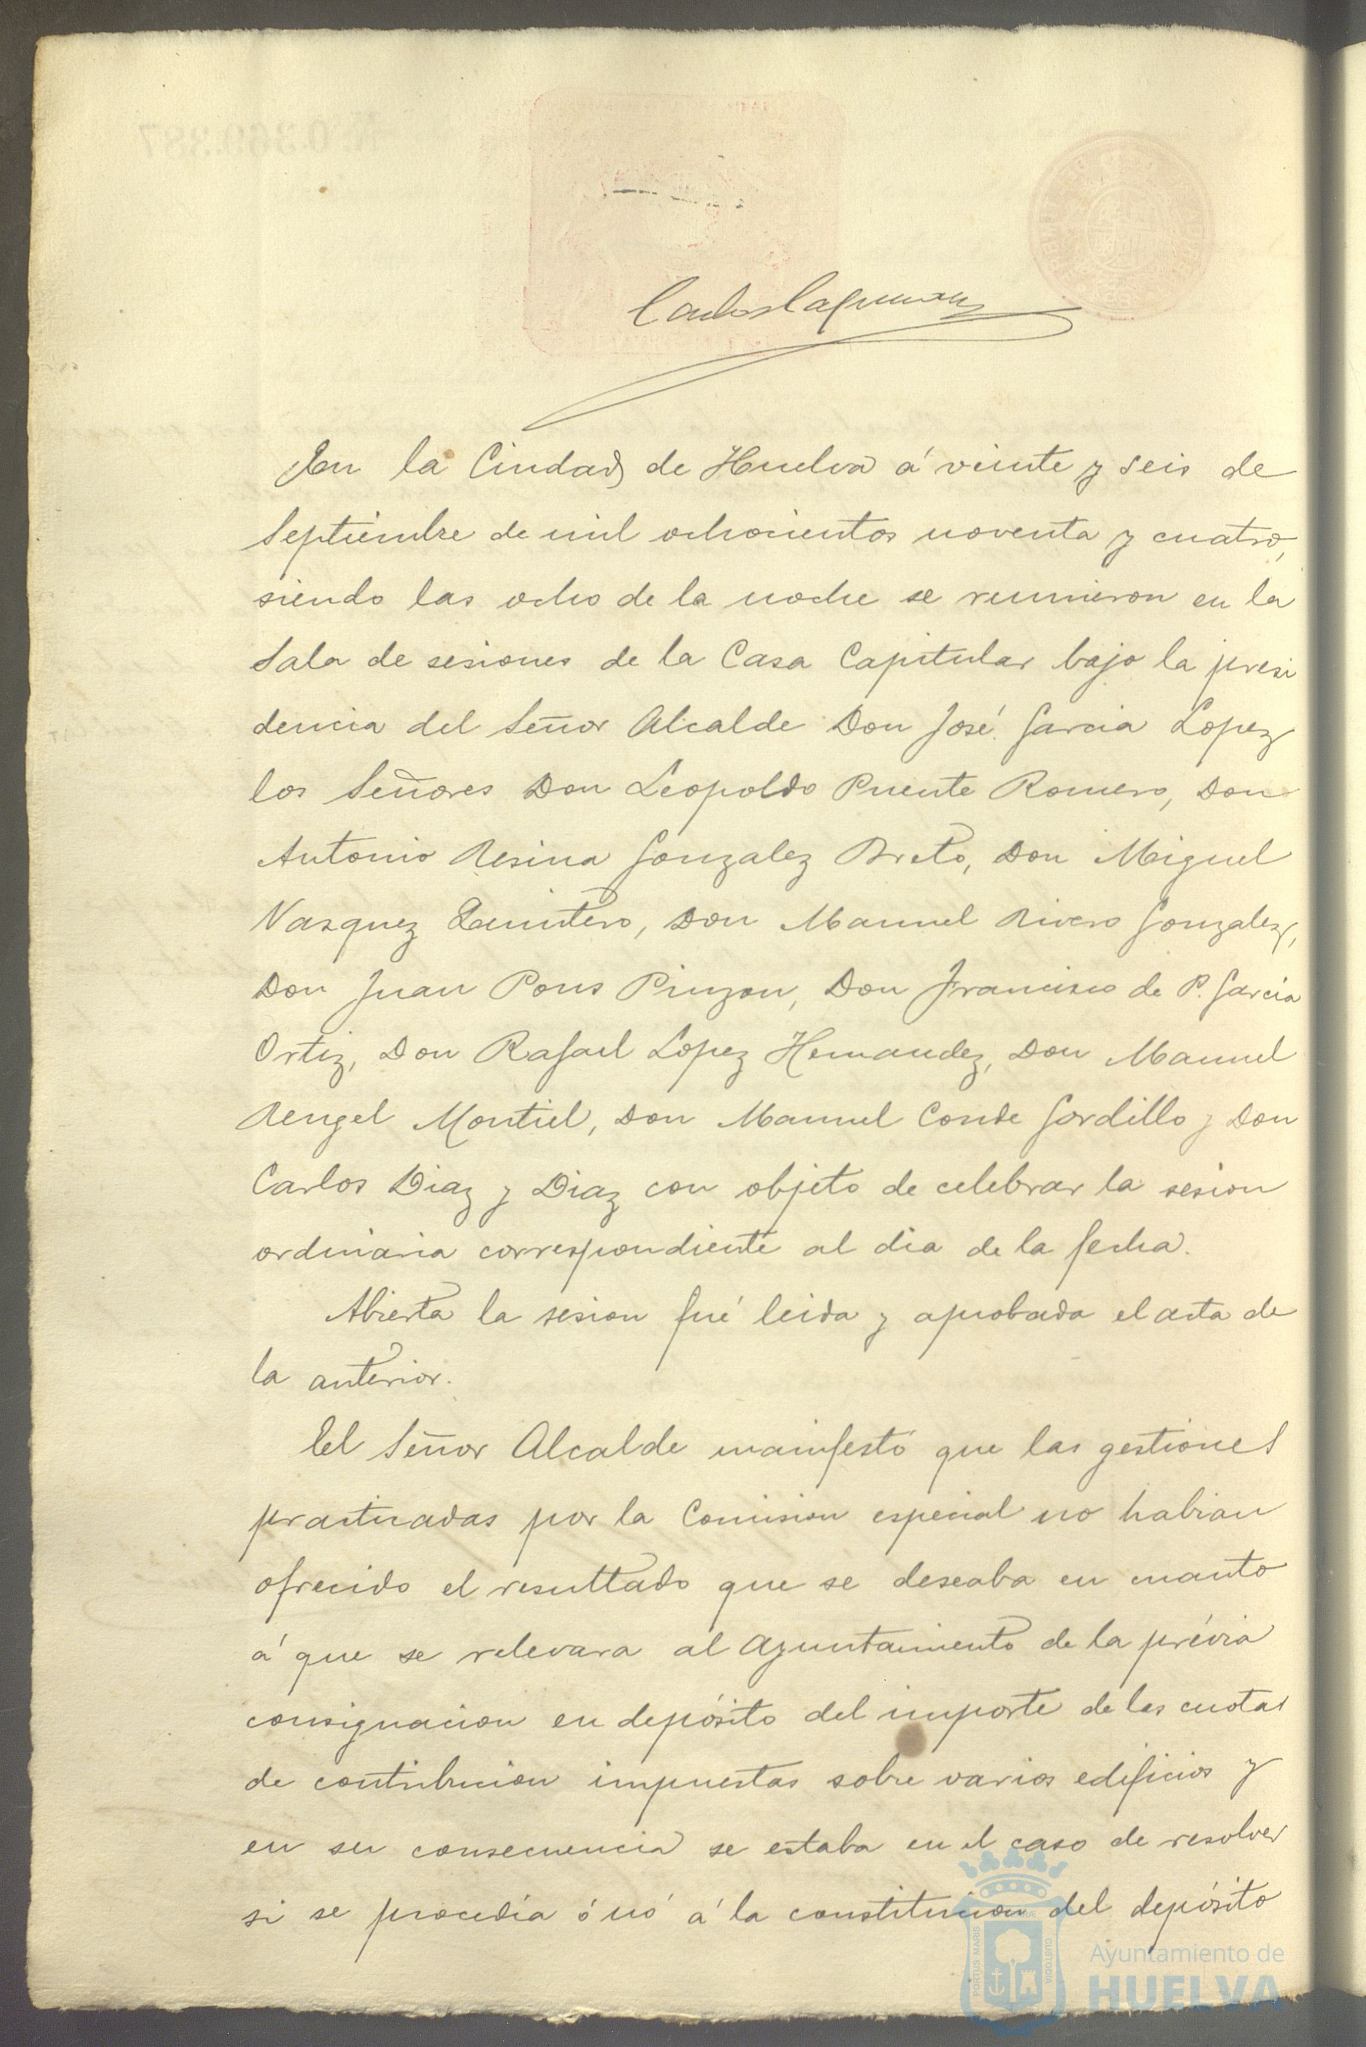 En la Ciudad de Huelva á veinte y seis de
Septiembre de mil ochocientos noventa y cuatro,
siendo las ocho de la noche se reunieron en la
Sala de sesiones de la Casa Capitular bajo la presi
dencia del Señor Alcalde Don José Garcia Lopez
los Señores Don Leopoldo Puente Romero, Don
Antonio Resina Gonzalez Breto, Don Miguel
Vazquez Quintero, Don Manuel Rivero Gonzalez,
Don Juan Pons Pinzon, Don Francisco de P. Garcia
Ortiz, Don Rafael Lopez Hernandez, Don Manuel
Rengel Montiel, Don Manuel Conde Gordillo y Don
Carlos Diaz y Diaz con objeto de celebrar la sesion
ordinaria correspondiente al dia de la fecha.
Abierta la sesion fué leida y aprobada el acta de
la anterior.
El Señor Alcalde manifestó que las gestiones
practicadas por la Comision especial no habian
ofrecido el resultado que se deseaba en cuanto
á que se relevara al Ayuntamiento de la prévia
consignacion en depósito del importe de las cuotas
de contribucion impuestas sobre varios edificios y
en su consecuencia se estaba en el caso de resolver
si se procedia ó nó á la constitucion del depósito
PORTUS MARIS
CUSTODIA
Ayuntamiento de
HUELVA